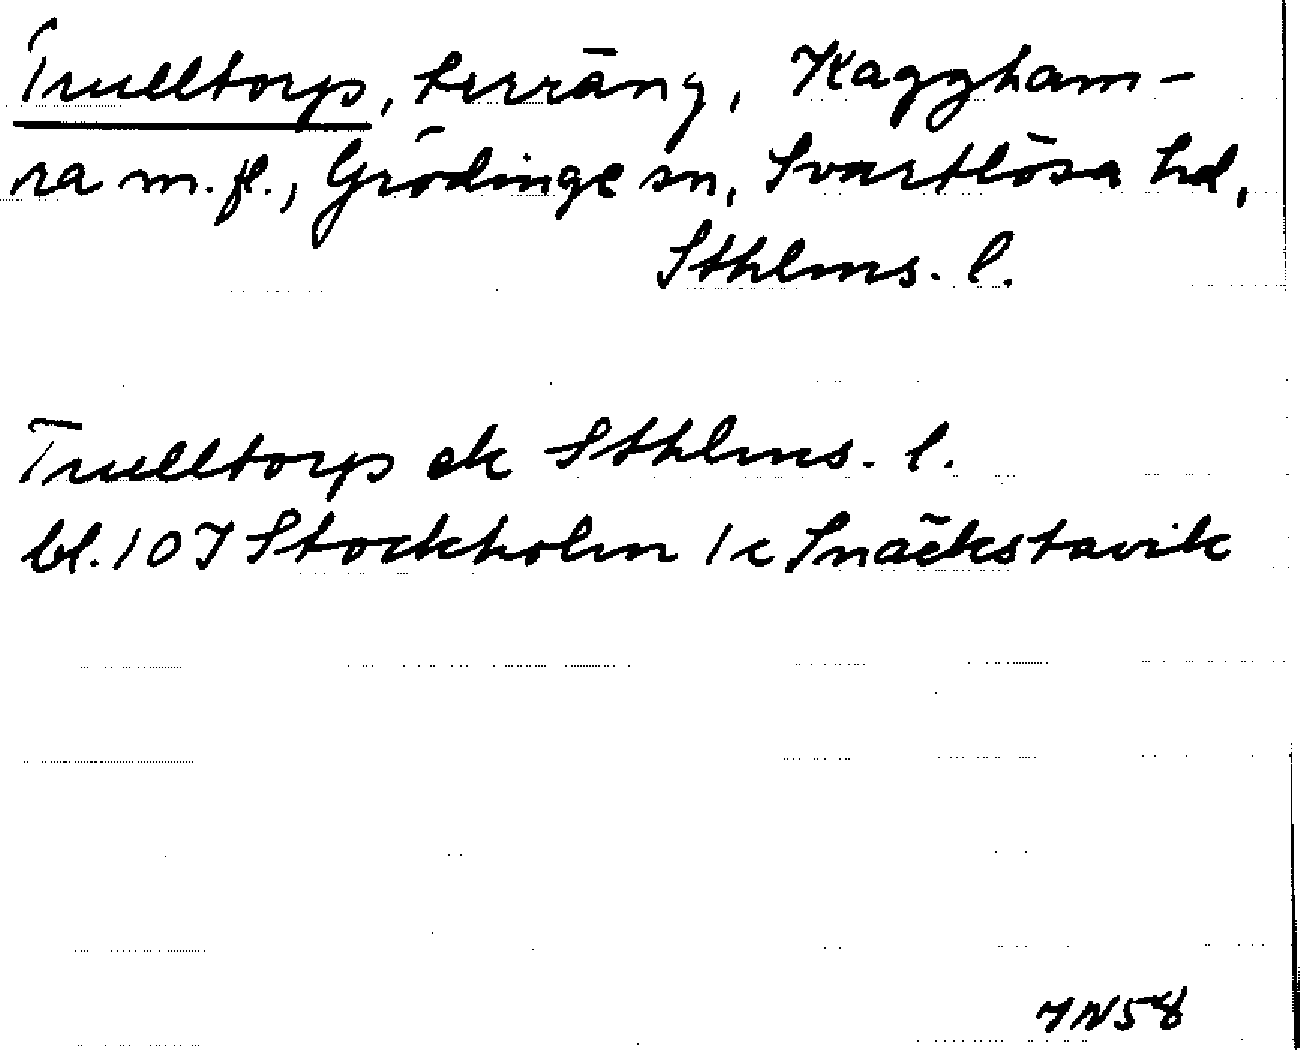 Trulltorp, terräng, Kaggham-
ra m.fl., Grödinge sn, Svartlösa hd,
Sthlms. l.
Trulltorp ek Sthlms. l.
bl. 10 I Stockholm 1c Snäckstavik